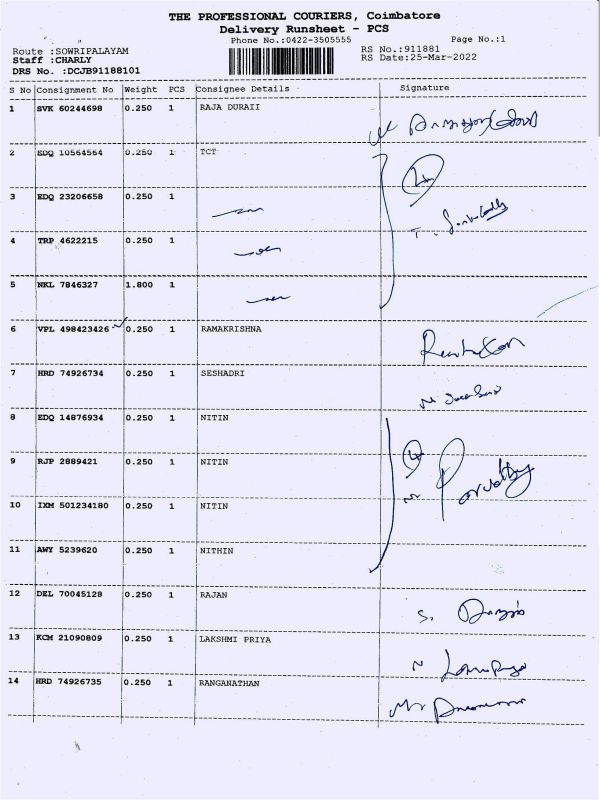 THE PROFESSIONAL COURIERS, Coimbatore
Delivery Runsheet - PCS
Phone No.:0422-3505555 Page No.:1
Route :SOWRIPALAYAM RS No.:911881
Staff :CHARLY RS Date:25-Mar-2022
DRS No. :DCJB91188101
S No Consignment No Weight PCS Consignee Details Signature
1 SVK 60244698 0.250 1 RAJA DURAII
2 EDQ 10564564 0.250 1 TCT
3 EDQ 23206658 0.250 1
4 TRP 4622215 0.250 1
5 NKL 7846327 1.800 1
6 VPL 498423426 0.250 1 RAMAKRISHNA
7 HRD 74926734 0.250 1 SESHADRI
8 EDQ 14876934 0.250 1 NITIN
9 RJP 2889421 0.250 1 NITIN
10 IXM 501234180 0.250 1 NITIN
11 AWY 5239620 0.250 1 NITHIN
12 DEL 70045128 0.250 1 RAJAN
13 KCM 21090809 0.250 1 LAKSHMI PRIYA
14 HRD 74926735 0.250 1 RANGANATHAN